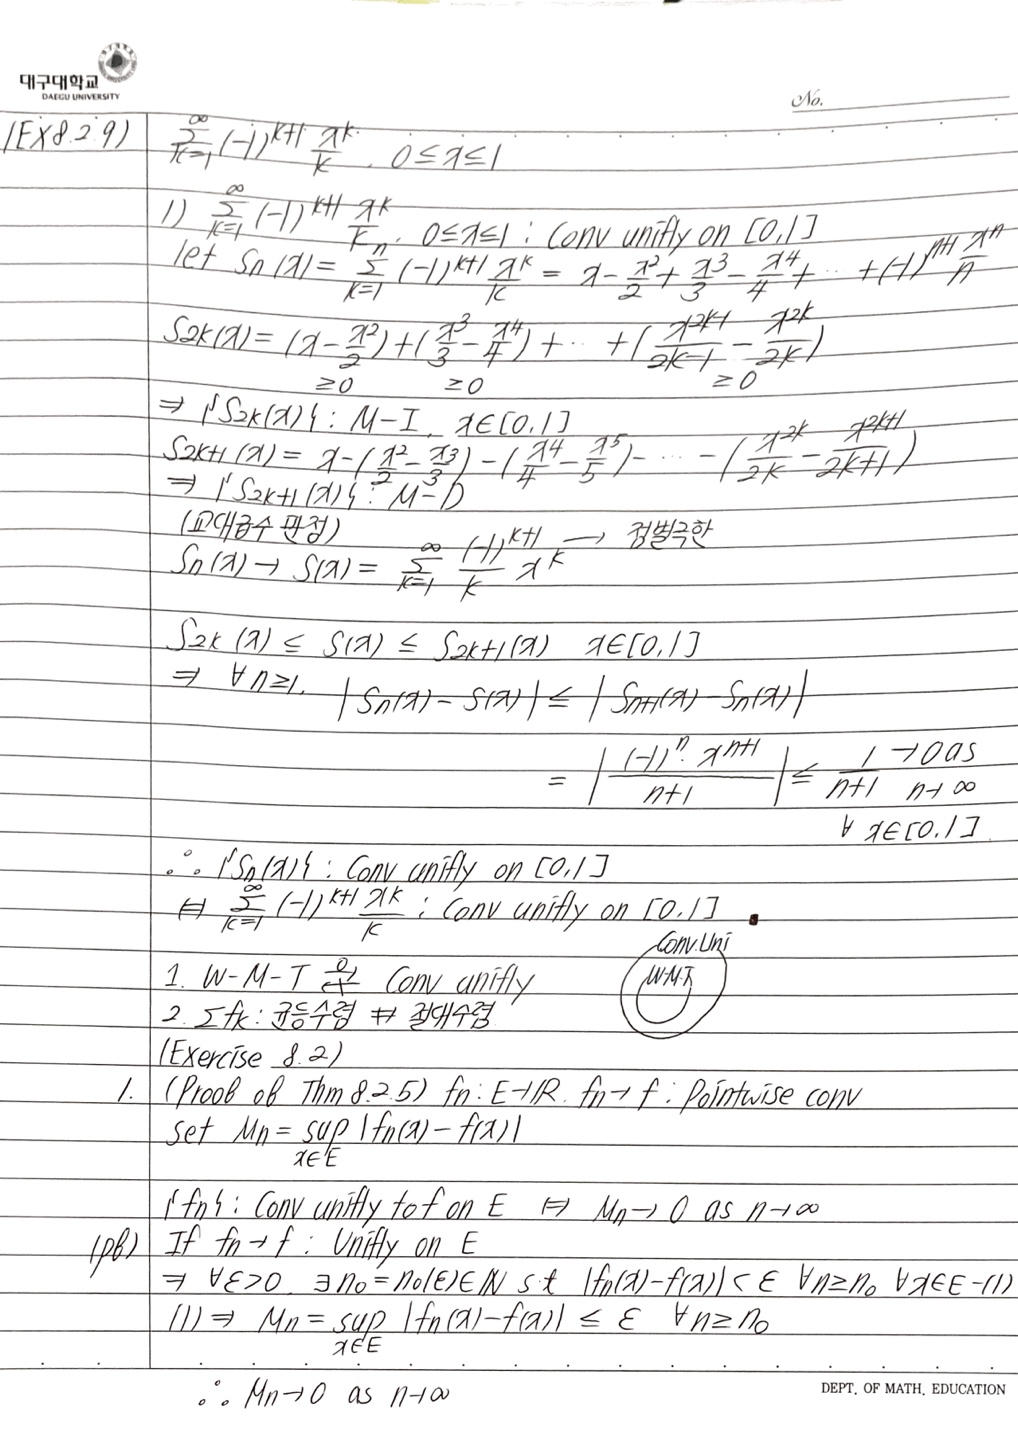 대구대학교
DAEGU UNIVERSITY
No.
(EX8.2.9) ∞Σk=1 (-1)^{k+1} x^k/k, 0≤x≤1
1) ∞Σk=1 (-1)^{k+1} x^k/k, 0≤x≤1 : Conv unifly on [0,1]
let Sn(x) = nΣk=1 (-1)^{k+1} x^k/k = x - x²/2 + x³/3 - x⁴/4 + ‥ + (-1)^{n+1} x^n/n
S2k(x) = (x - x²/2) + (x³/3 - x⁴/4) + ‥ + (x^{2k-1}/2k-1 - x^{2k}/2k)
≥0 ≥0 ≥0
⇒ {S2k(x)} : M-I, x∈[0,1]
S2k+1(x) = x - (x²/2 - x³/3) - (x⁴/4 - x⁵/5) - ⋯ - (x^{2k}/2k - x^{2k+1}/2k+1)
⇒ {S2k+1(x)} : M-D
(교대급수 판정)
Sn(x) → S(x) = ∞Σk=1 (-1)^{k+1}/k x^k → 점별극한
S2k(x) ≤ S(x) ≤ S2k+1(x) x∈[0,1]
⇒ ∀n≥1, |Sn(x) - S(x)| ≤ |Sn+1(x) - Sn(x)|
= |(-1)^n · x^{n+1}/n+1| ≤ 1/n+1 → 0 as n→∞
∀x∈[0,1]
∴ {Sn(x)} : Conv unifly on [0,1]
⇔ ∞Σk=1 (-1)^{k+1} x^k/k : Conv unifly on [0,1]
Conv.Uni
W-M-T
1. W-M-T Conv unifly
2. Σfk : 균등수렴 ⇏ 절대수렴
(Exercise 8.2)
1. (Proof of Thm 8.2.5) fn : E→ℝ. fn→f : Pointwise conv
set Mn = sup x∈E |fn(x) - f(x)|
{fn} : Conv unifly to f on E ⇔ Mn→0 as n→∞
(pf) If fn→f : Unifly on E
⇒ ∀ε>0 ∃n₀=n₀(ε)∈N s.t |fn(x)-f(x)|<ε ∀n≥n₀ ∀x∈E -(1)
(1) ⇒ Mn = sup x∈E |fn(x)-f(x)| ≤ ε ∀n≥n₀
∴ Mn→0 as n→∞
DEPT. OF MATH. EDUCATION